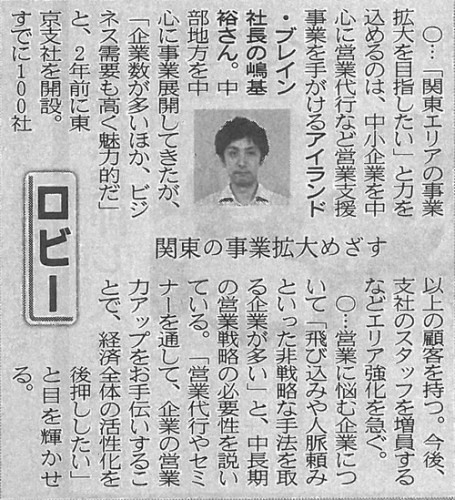 ロビー
関東の事業拡大めざす
〇…「関東エリアの事業
拡大を目指したい」と力を
込めるのは、中小企業を中
心に営業代行など営業支援
事業を手がけるアイランド
・ブレイン
社長の嶋基
裕さん。中
部地方を中
心に事業展開してきたが、
「企業数が多いほか、ビジ
ネス需要も高く魅力的だ」
と、2年前に東
京支社を開設。
すでに100社
以上の顧客を持つ。今後、
支社のスタッフを増員する
などエリア強化を急ぐ。
〇…営業に悩む企業につ
いて「飛び込みや人脈頼み
といった非戦略な手法を取
る企業が多い」と、中長期
の営業戦略の必要性を説い
ている。「営業代行やセミ
ナーを通して、企業の営業
力アップをお手伝いするこ
とで、経済全体の活性化を
後押ししたい」
と目を輝かせ
る。